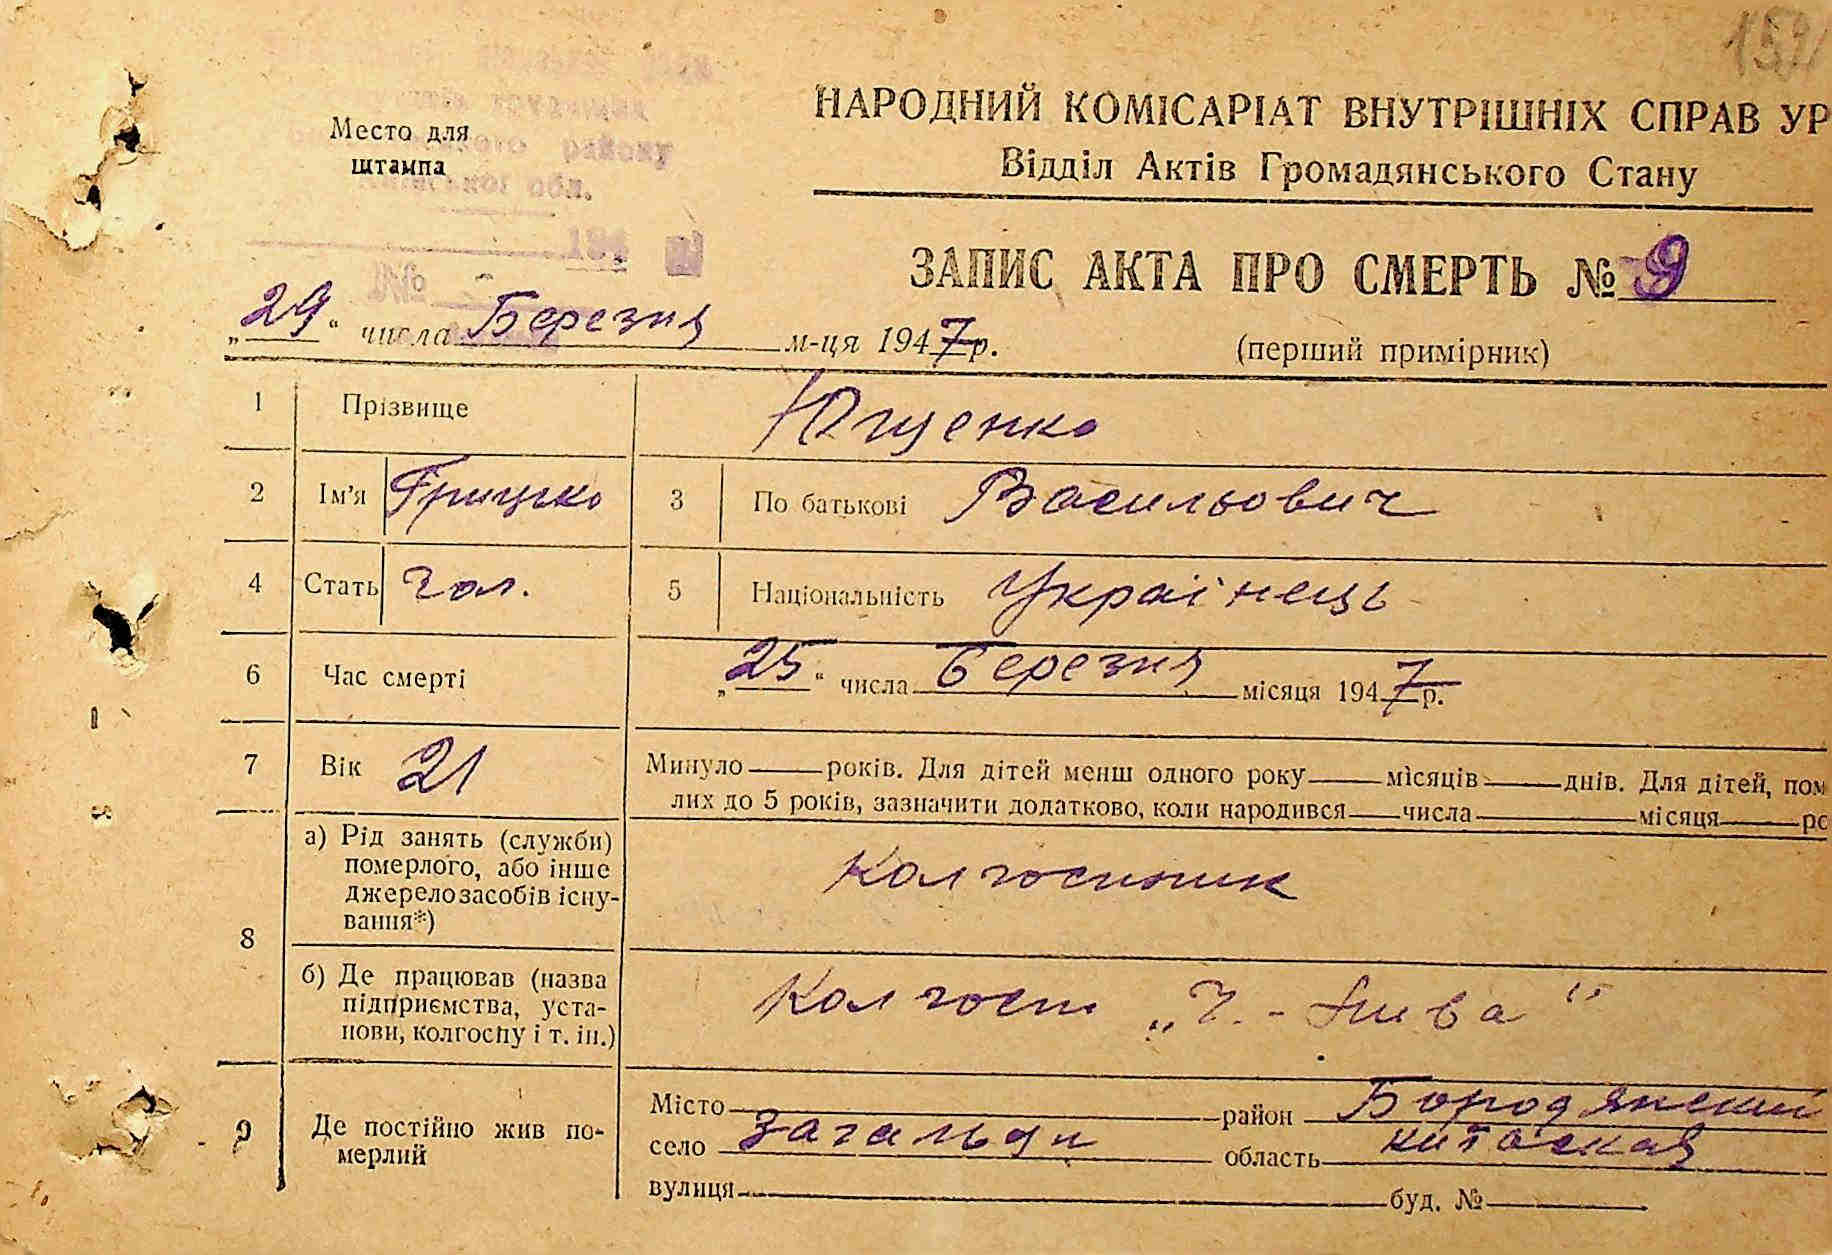 159
району
обл.
194
№
Место для
штампа
НАРОДНИЙ КОМІСАРІАТ ВНУТРІШНІХ СПРАВ УР
Відділ Актів Громадянського Стану
ЗАПИС АКТА ПРО СМЕРТЬ № 9
„29“ числа Березня м-ця 1947 р.
(перший примірник)
1 Прізвище Ющенко
2 Ім'я Грицько 3 По батькові Васильович
4 Стать чол. 5 Національність Українець
6 Час смерті „25“ числа Березня місяця 1947 р.
7 Вік 21 Минуло років. Для дітей менш одного року місяців днів. Для дітей, пом
лих до 5 років, зазначити додатково, коли народився числа місяця ро
8 а) Рід занять (служби)
померлого, або інше
джерело засобів існу-
вання*)
Колгоспник
б) Де працював (назва
підприємства, уста-
нови, колгоспу і т. ін.)
Колгосп „Ч.-Нива“
9 Де постійно жив по-
мерлий
Місто район Бородянский
село Загальци область
вулиця буд. №